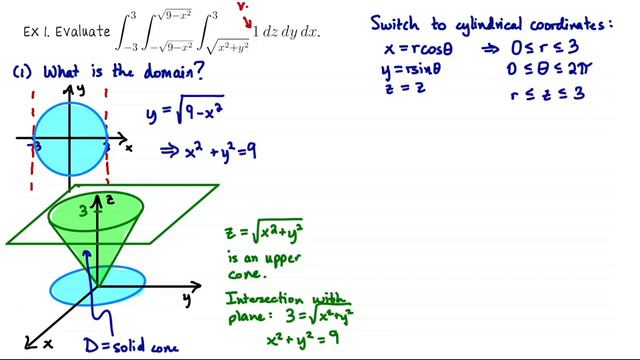 v.
Ex 1. Evaluate ∫_{-3}^{3} ∫_{-√(9-x²)}^{√(9-x²)} ∫_{√(x²+y²)}^{3} 1 dz dy dx.
(1) What is the domain?
y
-3
3
x
y = √(9-x²)
⇒ x² + y² = 9
z
3
y
x
D = solid cone
z = √(x²+y²)
is an upper
cone.
Intersection with
plane: 3 = √(x²+y²)
x² + y² = 9
Switch to cylindrical coordinates:
x = rcosθ ⇒ 0 ≤ r ≤ 3
y = rsinθ 0 ≤ θ ≤ 2π
z = z r ≤ z ≤ 3